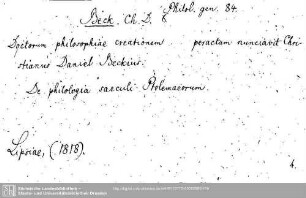 Philol. gen. 84.
Beck, Ch. D.
Doctorum philosophiae creationem peractam nunciavit Chri-
stianus Daniel Beckius.
De philologia saeculi Ptolemaeorum.
Lipsiae, (1818).
4.
Sächsische Landesbibliothek -
Staats- und Universitätsbibliothek Dresden